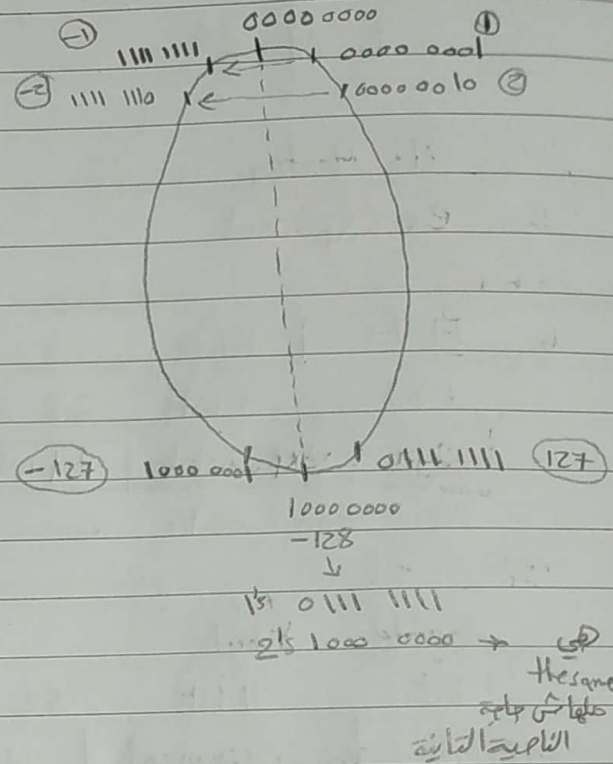 00000 0000
-1 1111 1111 0000 0001 1
-2 1111 1110 0000 0010 2
-127 1000 0001 0111 1111 127
1000 0000
-128
1's 0111 1111
2's 1000 0000 → هي
the same
ملهاش حاجة
الناحية التانية